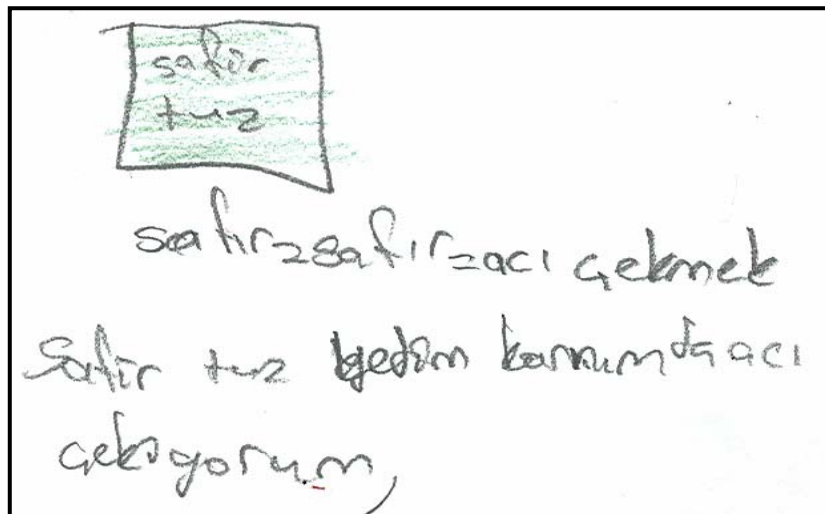 safir
tuz
safır=safır=acı çekmek
Safir tuz yedim karnımda acı
çekiyorum,